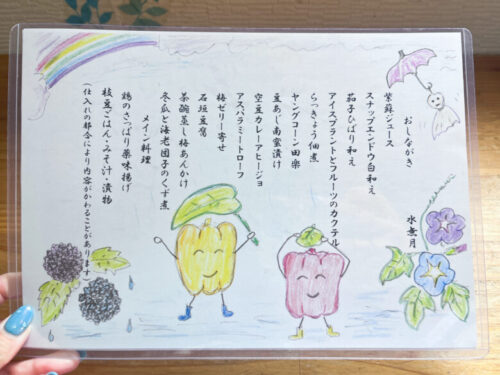 おしながき
水無月
紫蘇ジュース
スナップエンドウ白和え
茄子ひばり和え
アイスプラントとフルーツのカクテル
らっきょう佃煮
ヤングコーン田楽
豆あじ南蛮漬け
空豆カレーアヒージョ
アスパラミートローフ
梅ゼリー寄せ
石垣豆腐
茶碗蒸し梅あんかけ
冬瓜と海老団子のくず煮
メイン料理
鶏のさっぱり薬味揚げ
枝豆ごはん・みそ汁・漬物
(仕入れの都合により内容がかわることがあります)